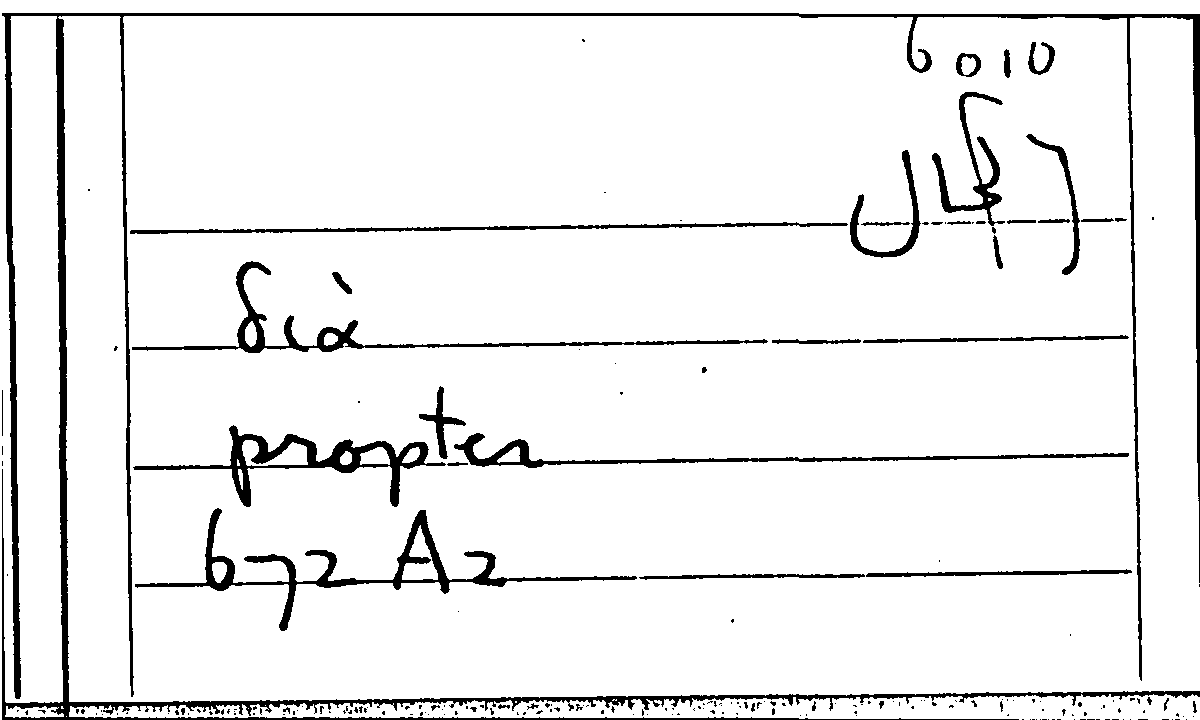 6010
διὰ
propter
672 A2